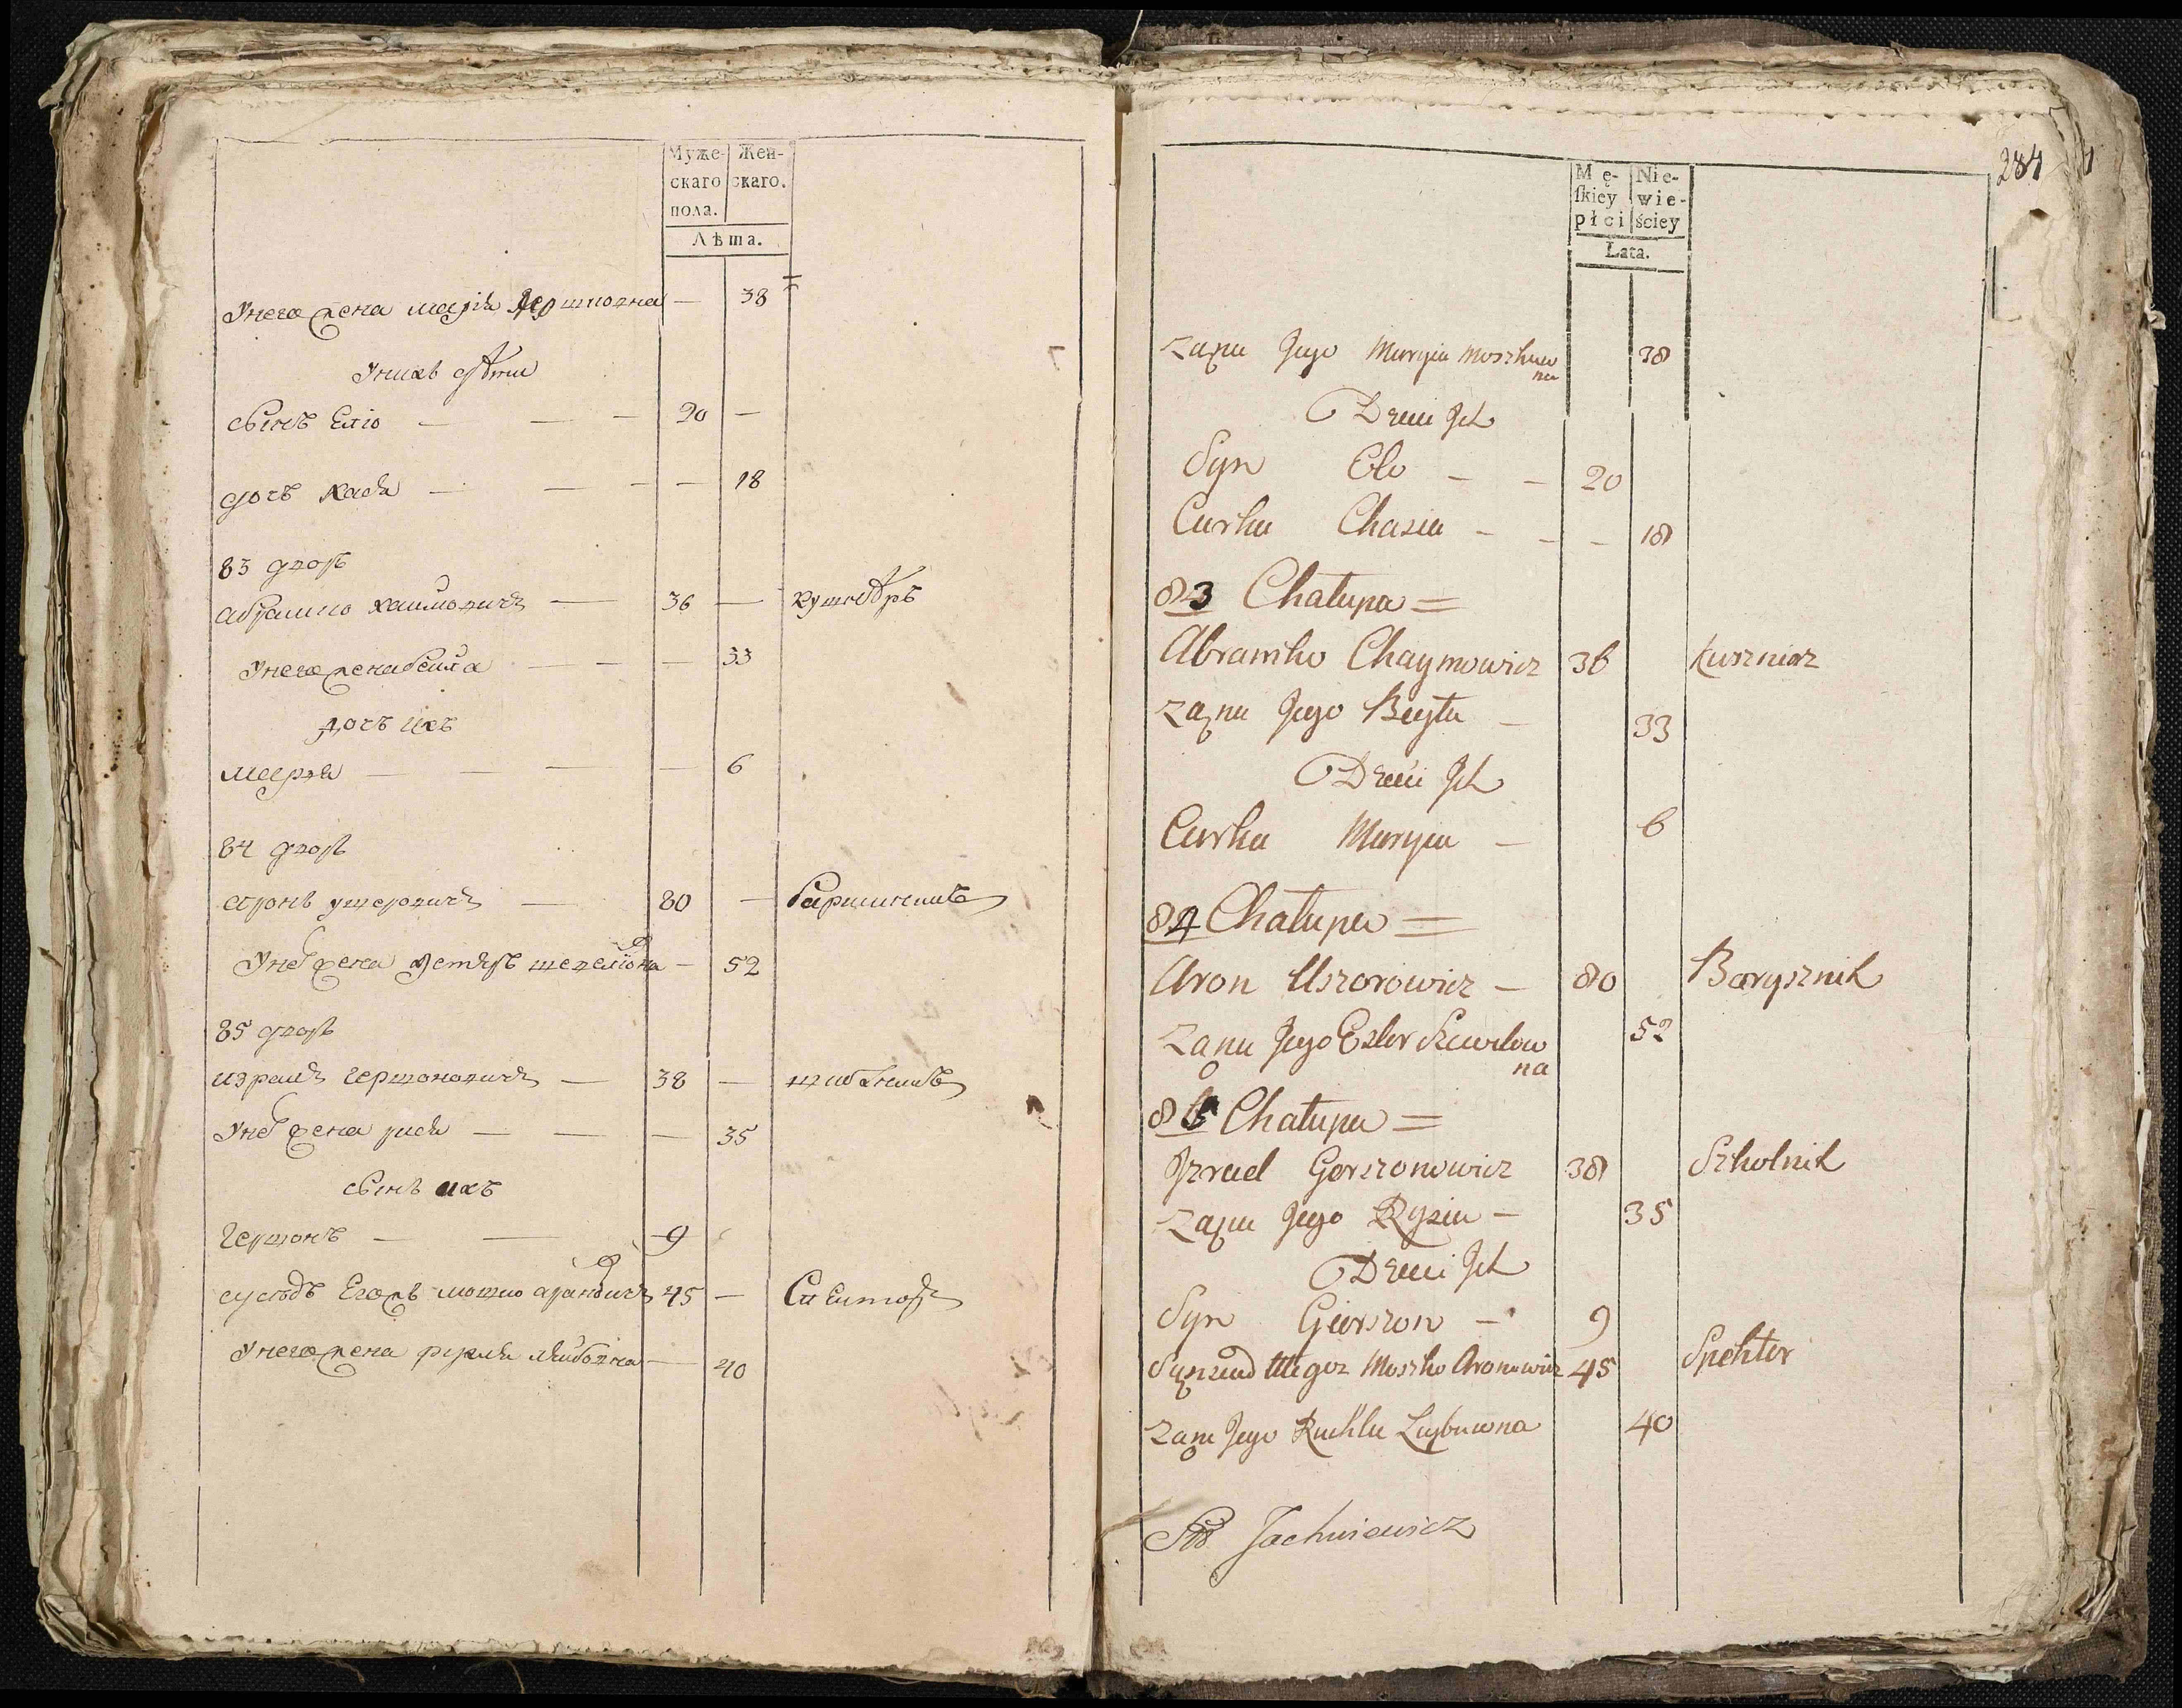 Муже- Жен-
скаго скаго.
пола.
Лѣта.
Унего жена марія — 38
Унихъ дѣти
сынъ Еліо — — — 20 —
дочь хася — — — — 18
83 дворъ
абрамко хаимовичъ — 36 — кушнѣръ
Унего жена бейла — — — 33
дочь ихъ
марья — — — — 6
84 дворъ
аронъ ушеровичъ — 80 — барышникъ
Унего жена — 52
85 дворъ
израиль гершоновичъ — 38 — школникъ
Унего жена рися — — — 35
сынъ ихъ
гершонъ — — 9
сусѣдъ Егожъ мошко ароновичъ 45 — Спекторъ
Унего жена лейбовна — 40
284
Mę- Nie-
skiey wie-
płci ściey
Lata.
Zaona Jego Maryia Moszkow
na 38
Dzieci Jch
Syn Elo — — 20
Curka Chasia — — — 18
83 Chałupa =
Abramko Chaymowicz 36 Kusznierz
Zaona Jego Beyła — 33
Dzieci Jch
Curka Maryia — 6
84 Chałupa =
Aron Uszorowicz — 80 Barysznik
Zona Jego Ester Szewelow
na 52
85 Chałupa =
Jzrael Gerszonowicz 38 Szkolnik
Zaona Jego Rysia — 35
Dzieci Jch
Syn Gierszon — 9
Sąsiad Moszko Aronowicz 45 Spektor
Zona Jego Ruchla Leybowna 40
Jachniewicz